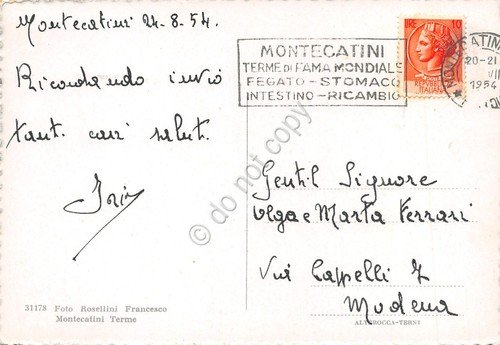 Montecatini 24.8.54.
Ricordando invio
tant. cari salut.
31178 Foto Rosellini Francesco
Montecatini Terme
MONTECATINI
TERME DI FAMA MONDIALE
FEGATO - STOMACO
INTESTINO - RICAMBIO
LIRE 10
20-21
1954
Gentil Signore
Olga e Marta Ferrari
Via Cappelli 7
Modena
ALTEROCCA-TERNI
do not copy